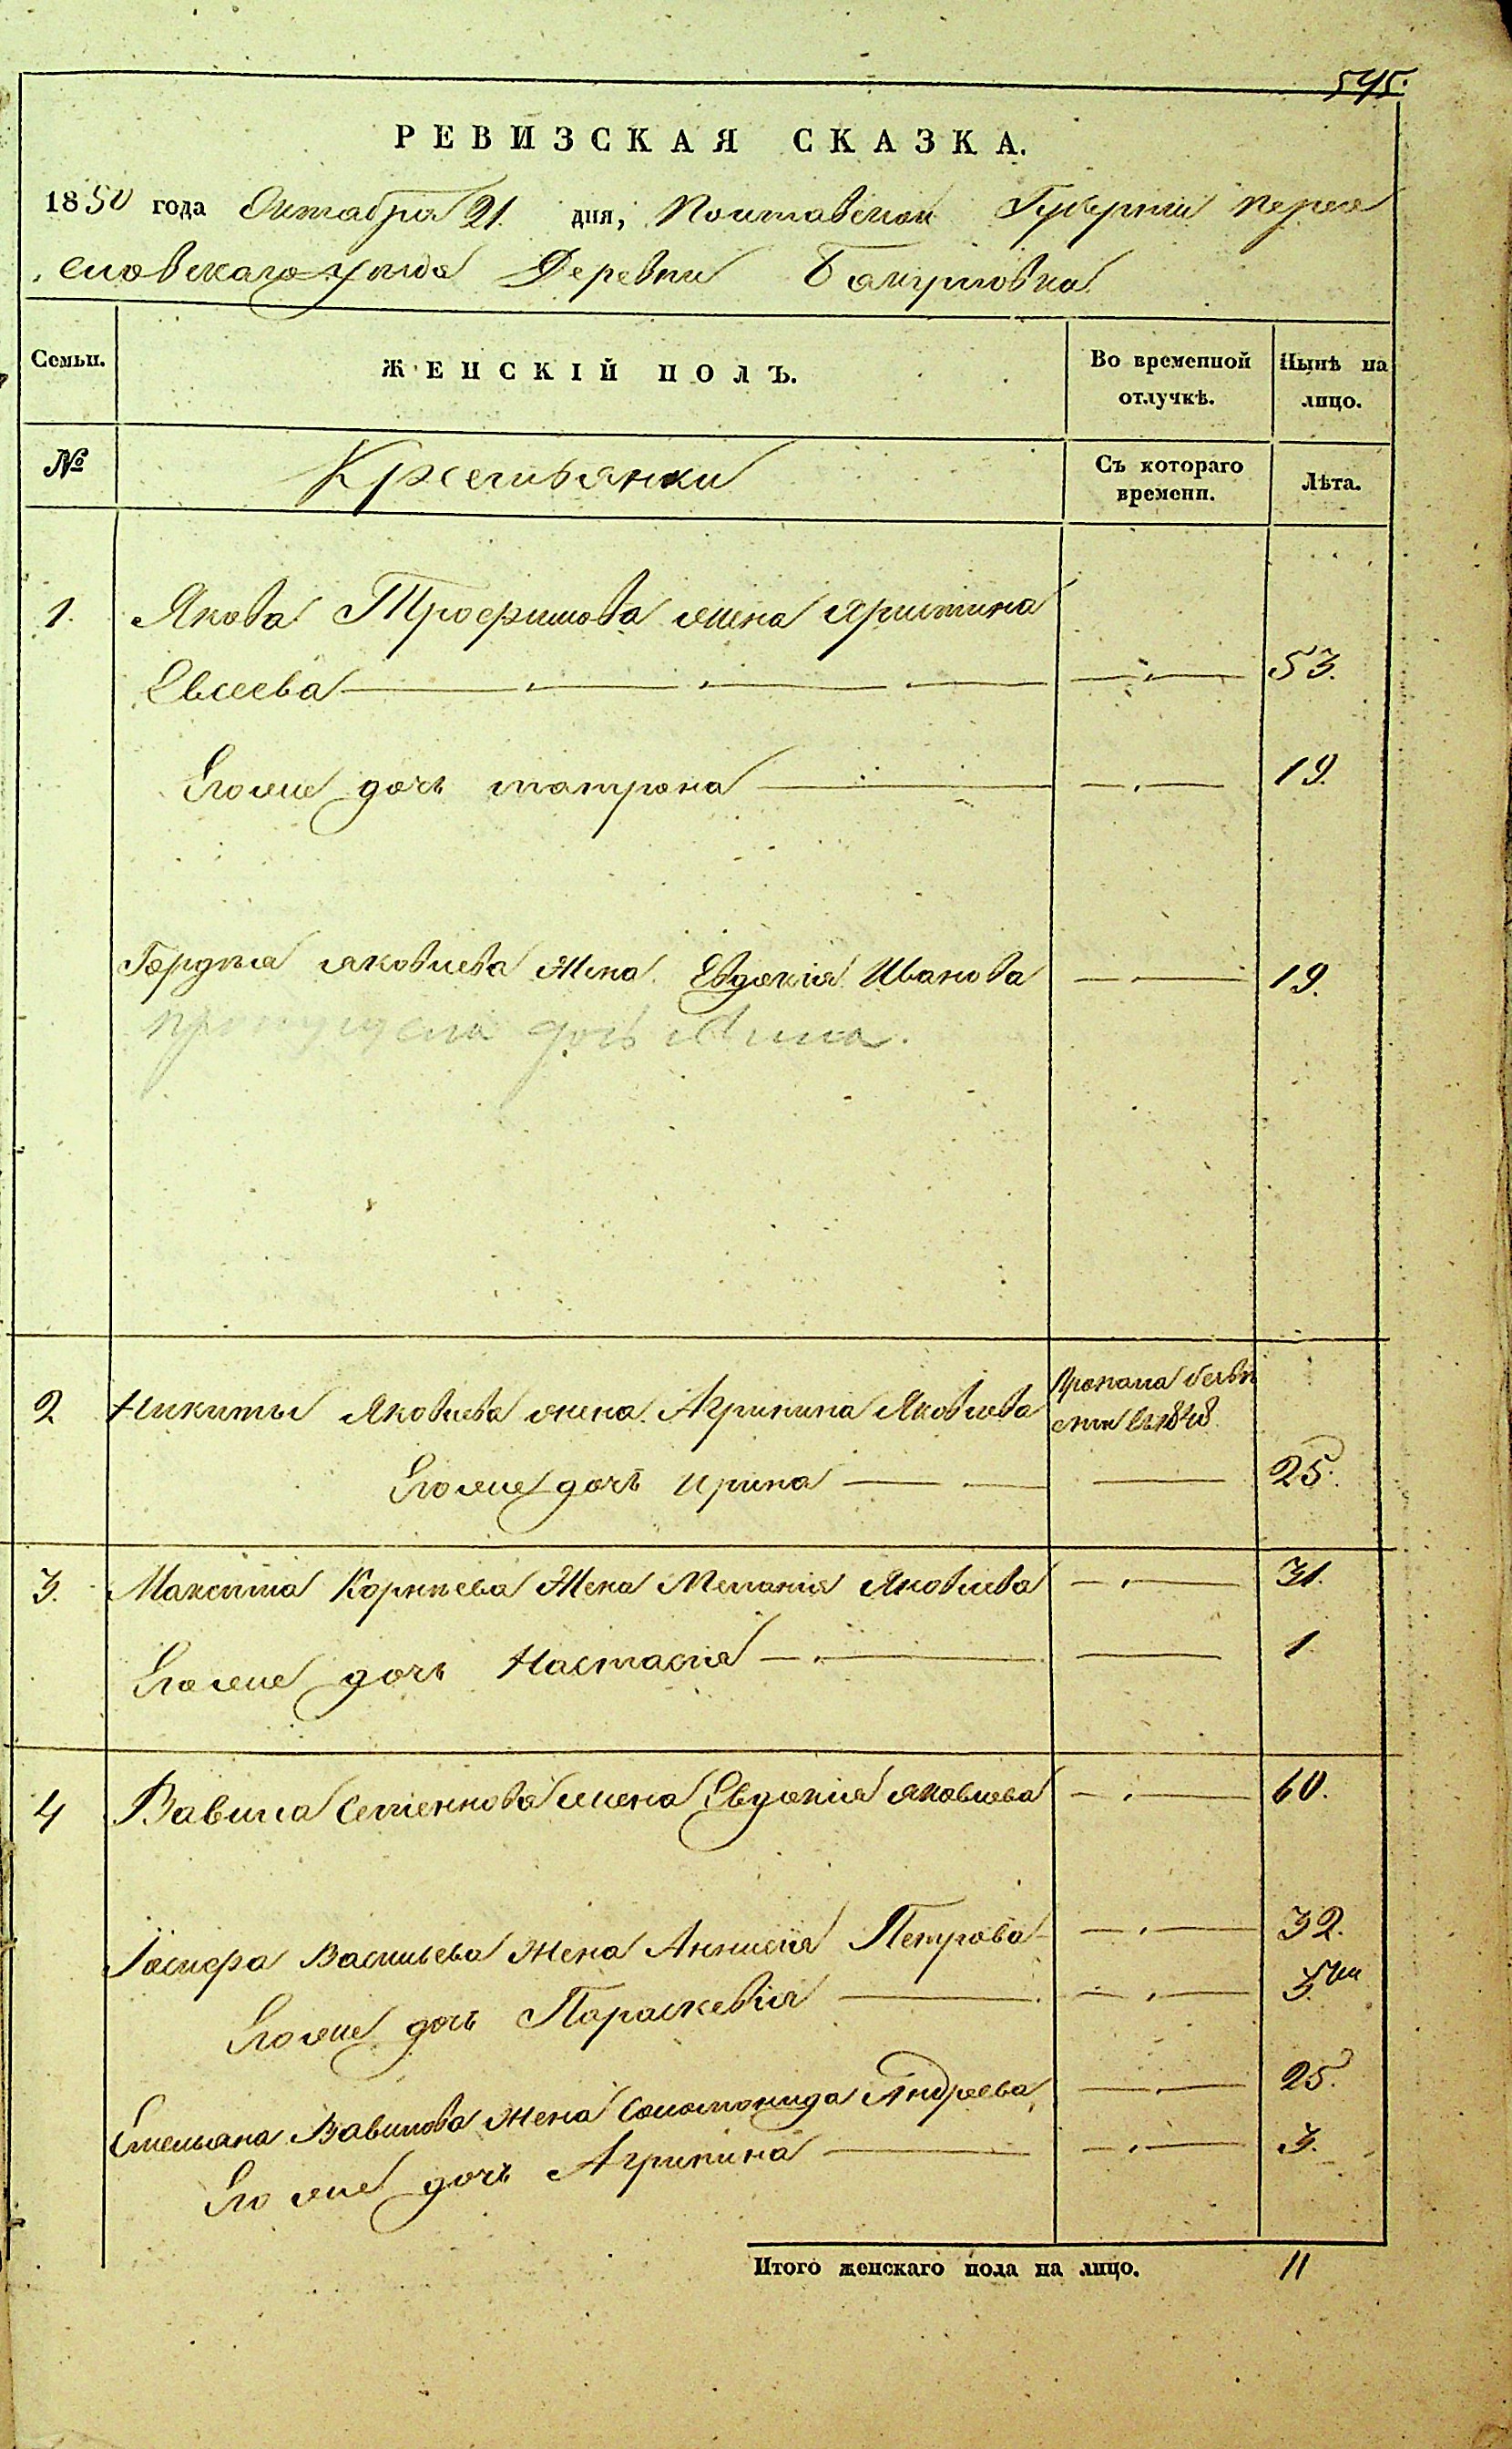 545.
РЕВИЗСКАЯ СКАЗКА.
1850 года Октабря 21. дня, Полтавской Губерніи Перея
словскаго уезда Деревни Бакумовка
Семьи. ЖЕНСКІЙ ПОЛЪ. Во временной отлучкѣ. Нынѣ на лицо.
№ Крестьянки Съ котораго времени. Лѣта.
1. Якова Трофимова жена Христина
Евсеева 53.
Егоже дочь матрона 19.
Гордѣя яковлева жена Евдокія Иванова 19.
пропущена дочь Анна.
2 Никиты Яковлева жена Агрипина Яковлева Пропала безвѣ
сти въ 1848
Егоже дочь Ирина 25.
3. Максима Корнѣева Жена Меланія Яковлева 31.
Егоже дочь Настасія 1
4 Вавила Семеннова жена Евдокія яковлева 60.
Іосифа Васильева жена Аннисія Петрова 32.
Егоже дочь Параскевія
Емельяна Вавилова жена Соломонида Андреева 25.
Егоже дочь Агрипина 3.
Итого женскаго пола на лицо. 11